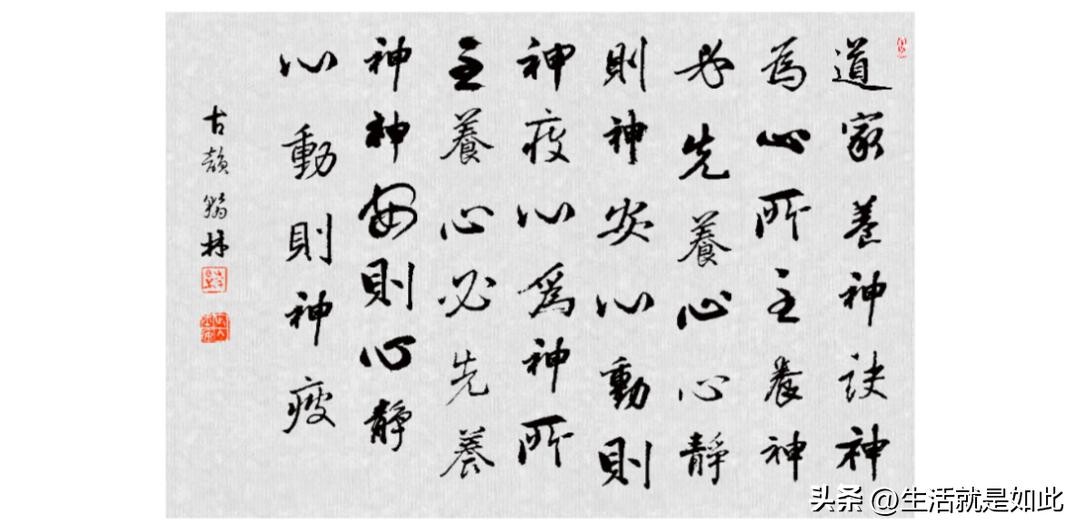 道家養神訣神
為心所主養神
必先養心心靜
則神安心動則
神疲心爲神所
主養心必先養
神神安則心靜
心動則神疲
古韻翰林
头条 @生活就是如此